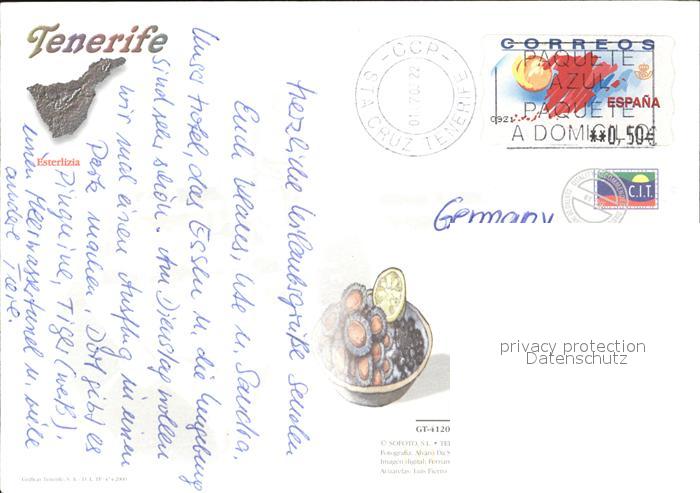 Tenerife
Esterlizia
Herzliche Urlaubsgrüße senden
Euch Ute u. Sandra.
Unser Hotel, das Essen u. die Umgebung
sind sehr schön. Am Dienstag wollen
wir mal einen Ausflug in einen
Park machen. Dort gibt es
Pinguine, Tiger (weiß),
einen Meerwassertunnel u. viele
andere Tiere.
CCP
STA CRUZ TENERIFE
CORREOS
PAQUETE
AZUL
PAQUETE
A DOMICILIO
ESPAÑA
**0,50€
C.I.T.
Germany
privacy protection
Datenschutz
GT-4120
© SOFOTO, S.L. • TEL
Imagen digital: Fernan
Acuarelas: Luis Fierro
Gráficas Tenerife, S. A.